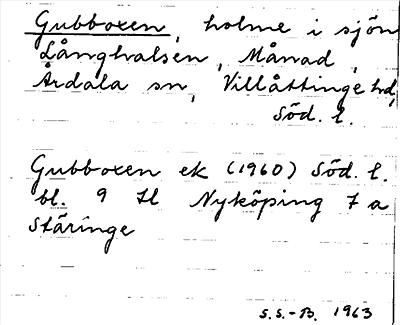 Gubboxen, holme i sjön
Långhalsen, Månad,
Årdala sn, Villåttinge hd,
Söd. l.
Gubboxen ek (1960) Söd. l.
bl. 9 Il Nyköping 7 a
Stäringe
S.S.-B. 1963